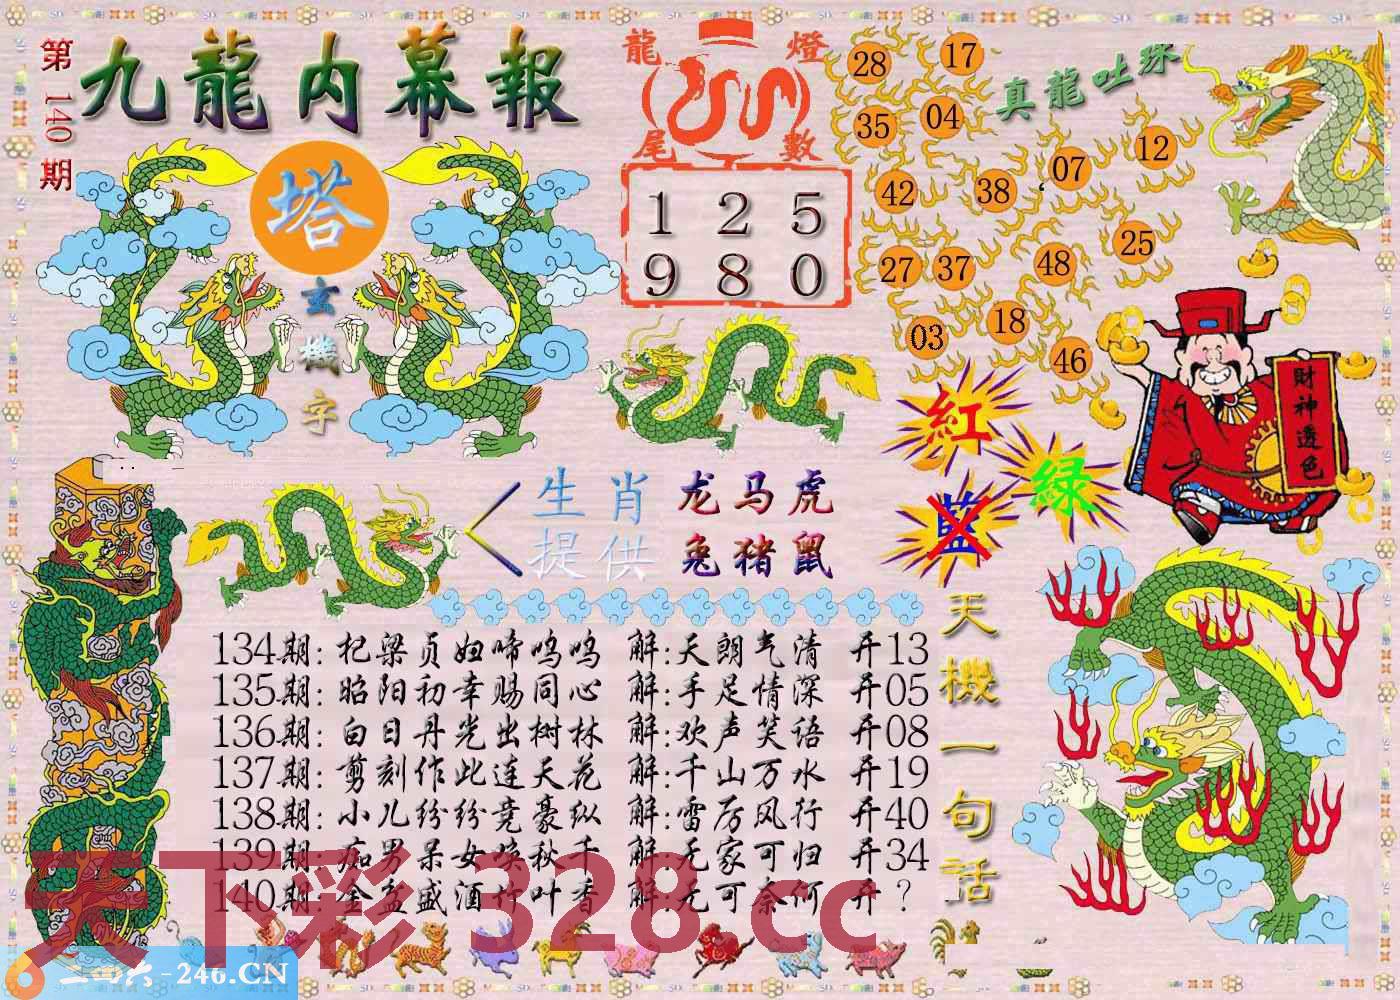 第140期
九龍内幕報
塔
玄機字
龍燈
尾數
1 2 5
9 8 0
真龍吐珠
28 17
35 04
12
07
42 38
25
27 37 48
03 18
46
財神透色
紅
绿
藍
生肖 龙马虎
提供 兔猪鼠
天機一句話
134期: 杞梁贞妇啼呜呜 解:天朗气清 开13
135期: 昭阳初幸赐同心 解:手足情深 开05
136期: 白日丹光出树林 解:欢声笑语 开08
137期: 剪刻作此连天花 解:千山万水 开19
138期: 小儿纷纷竞豪纵 解:雷厉风行 开40
139期: 痴男呆女唤秋千 解:无家可归 开34
140期: 金盆盛酒竹叶香 解:无可奈何 开?
天下彩 328.cc
二四六-246.CN